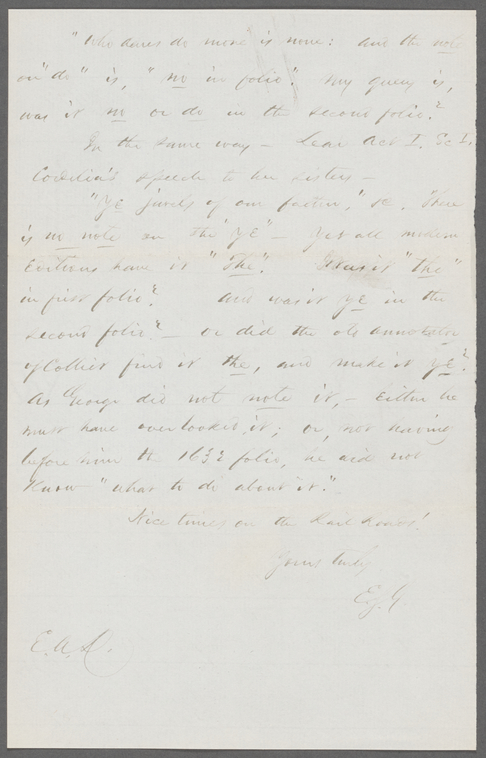 "Who dares do more is none: and the note
on "do" is, "no in folio". My query is,
was it no or do in the second folio?
In the same way – Lear Act I. Sc I,
Cordelia's speech to her sisters –
"Ye jewels of our father," &c. There
is no note on the "Ye" – Yet all modern
Editions have it "The". Was it "the"
in first folio? And was it ye in the
second folio? – or did the old annotator
of Collier find it the, and make it ye?
As George did not note it, – either he
must have overlooked it; or, not having
before him the 1632 folio, he did not
know "what to do about it".
Nice times on the Rail Roads!
Yours truly
E. G.
E. A. D.